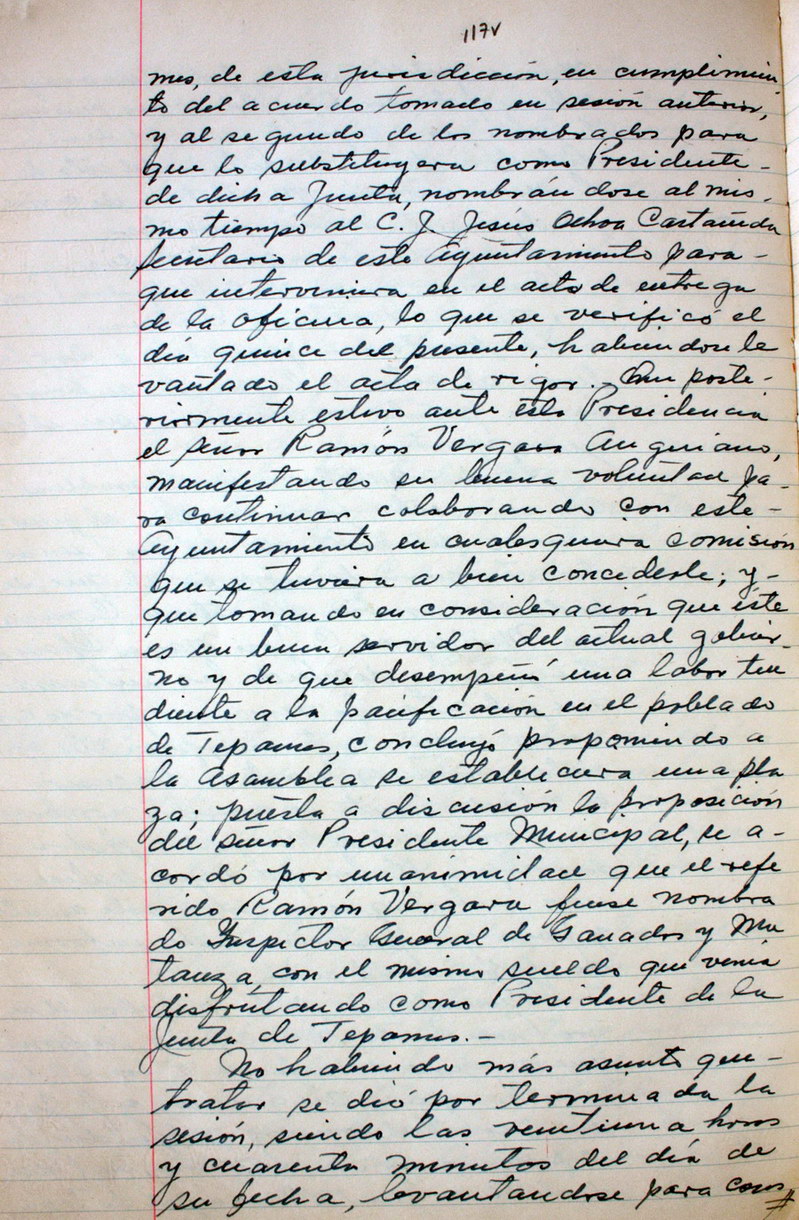 117v
mes, de esta jurisdicción, en cumplimien
to del acuerdo tomado en sesión anterior,
y al segundo de los nombrados para
que lo substituyera como Presidente-
de dicha Junta, nombrándose al mis-
mo tiempo al C. J. Jesús Ochoa Castañeda
Secretario de este Ayuntamiento para-
que interviniera en el acto de entrega
de la oficina, lo que se verificó el
día quince del presente, habiendose le
vantado el acta de rigor.- Que poste-
riormente estuvo ante esta Presidencia
el señor Ramón Vergara Anguiano,
manifestando su buena voluntad pa-
ra continuar colaborando con este-
Ayuntamiento en cualesquiera comisión
que se tuviera a bien concederle; y-
que tomando en consideración que éste
es un buen servidor del actual gobier-
no y de que desempeñó una labor ten
diente a la pacificación en el poblado
de Tepames, concluyó proponiendo a
la Asamblea se estableciera una pla
za; puesta a discusión la proposición
del señor Presidente Municipal, se a-
cordó por unanimidad que el refe
rido Ramón Vergara fuese nombra
do Inspector General de Ganados y Ma
tanza, con el mismo sueldo que venía
disfrutando como Presidente de la
Junta de Tepames.-
No habiendo más asunto que-
tratar se dió por terminada la
sesión, siendo las veintiuna horas
y cuarenta minutos del día de
su fecha, levantandose para cons